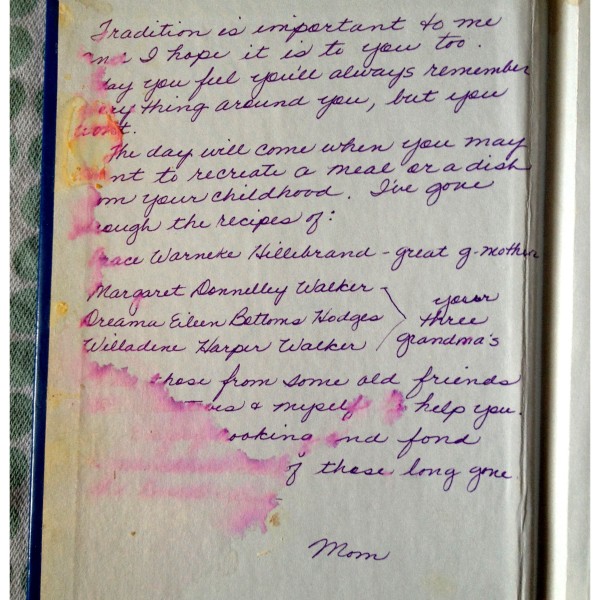 Tradition is important to me
and I hope it is to you too.
may you feel you'll always remember
everything around you, but you
won't.
The day will come when you may
want to recreate a meal or a dish
from your childhood. I've gone
through the recipes of:
Grace Warneke Hillebrand - great g-mother
Margaret Donnelley Walker -
Dreama Eileen Bottoms Hodges
Willadine Harper Walker
your
three
grandma's
those from some old friends
& myself help you.
cooking and fond
of those long gone.
Mom